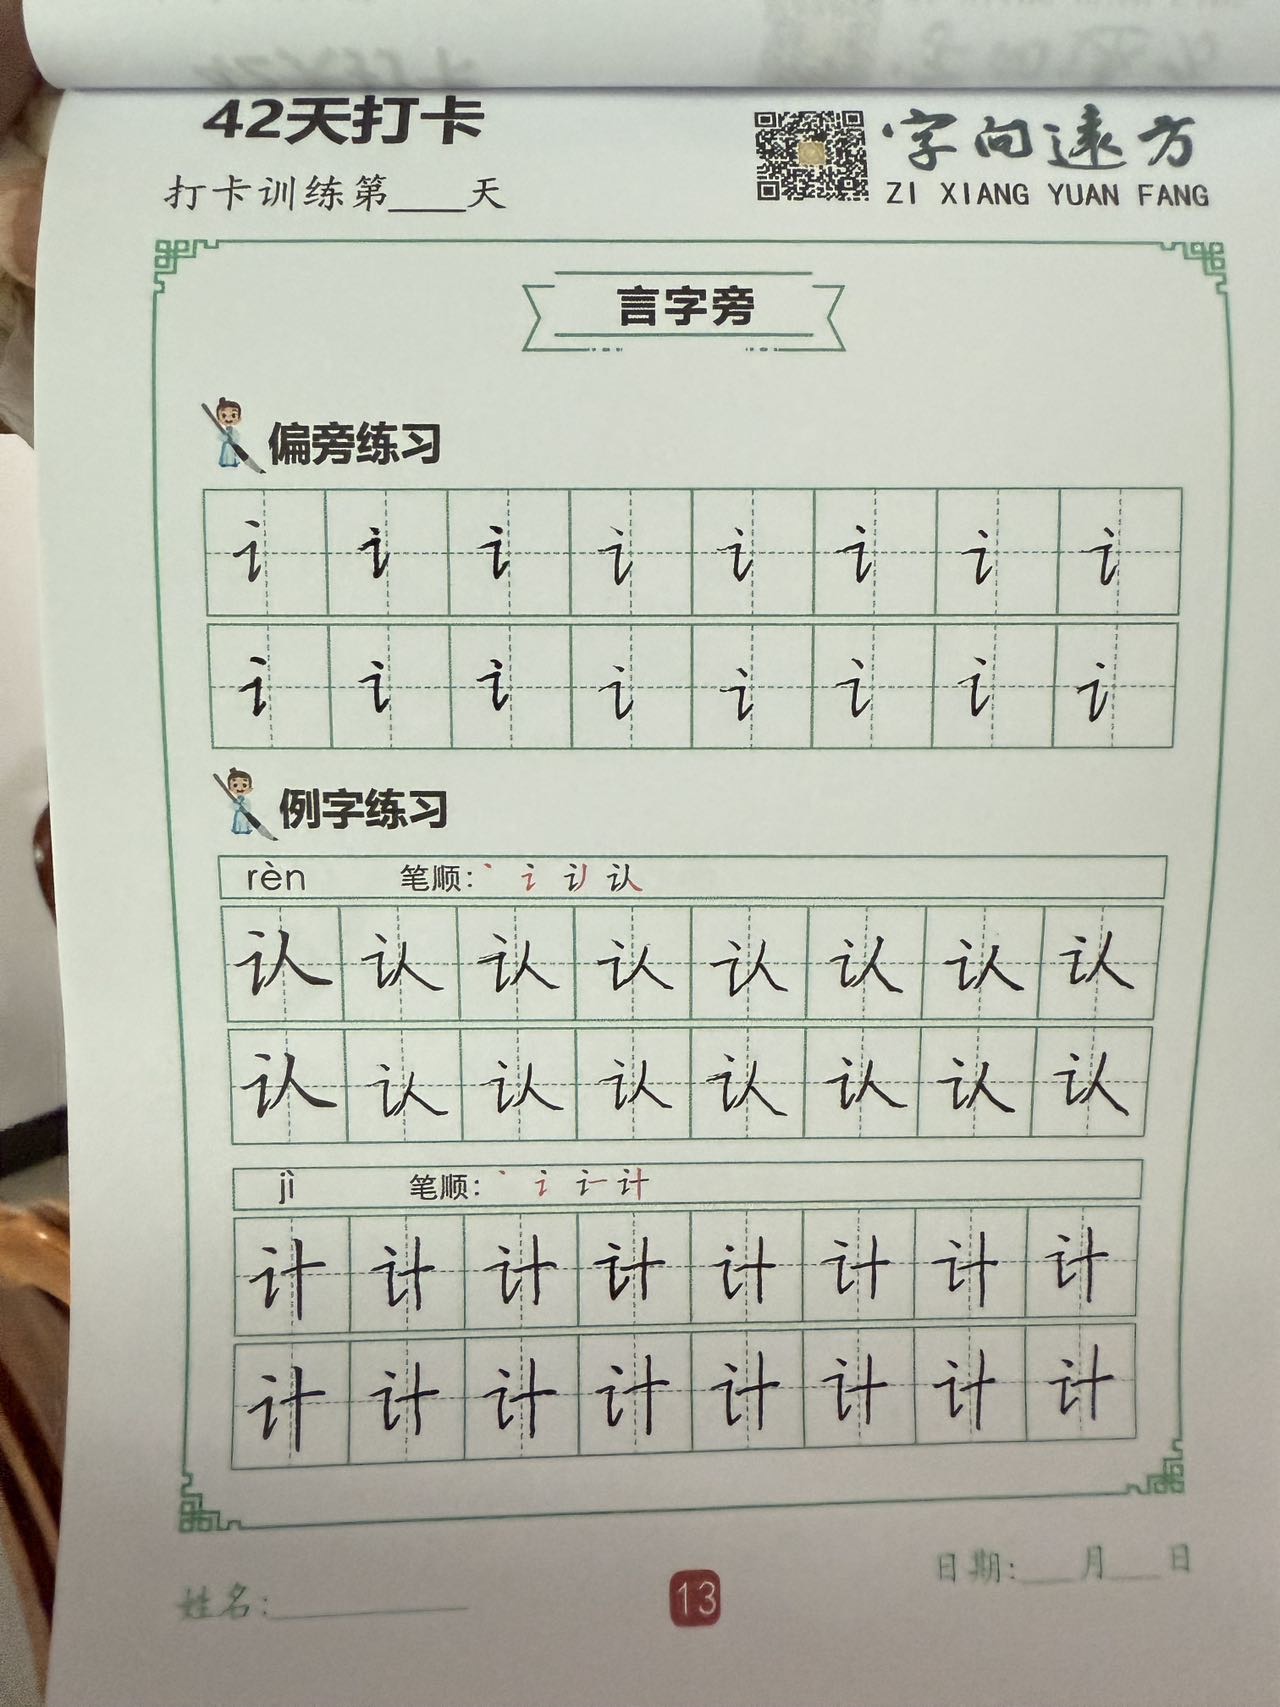 42天打卡
字向遠方
打卡训练第____天
ZI XIANG YUAN FANG
言字旁
偏旁练习
讠 讠 讠 讠 讠 讠 讠 讠
讠 讠 讠 讠 讠 讠 讠 讠
例字练习
rèn 笔顺: 丶 讠 认 认
认 认 认 认 认 认 认 认
认 认 认 认 认 认 认 认
jì 笔顺: 丶 讠 计 计
计 计 计 计 计 计 计 计
计 计 计 计 计 计 计 计
日期:___月___日
姓名:__________
13